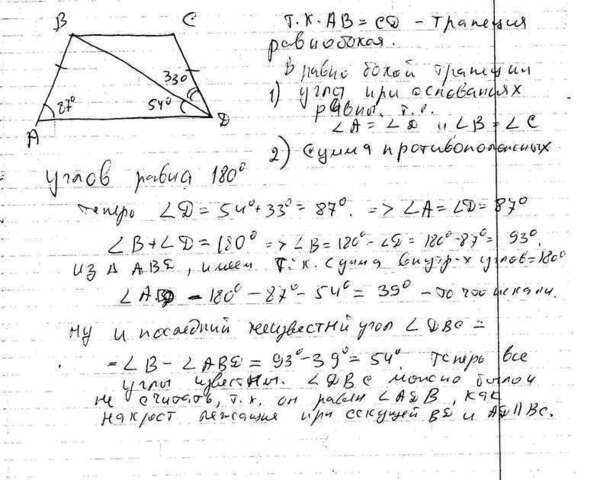 B
C
33°
87°
54°
A
D
Т.К. AB = CD - трапеция
равнобокая.
В равнобокой трапеции
1) углы при основаниях
равны, т.е.
∠A = ∠D и ∠B = ∠C
2) Сумма противоположных
углов равна 180°
теперь ∠D = 54° + 33° = 87°. => ∠A = ∠D = 87°
∠B + ∠D = 180° => ∠B = 180° - ∠D = 180° - 87° = 93°.
из Δ ABD, имеем т.к. сумма внутр-х углов = 180°
∠ABD = 180° - 87° - 54° = 39° - то что искали.
Ну и последний неизвестный угол ∠DBC =
= ∠B - ∠ABD = 93° - 39° = 54°. теперь все
углы известны. ∠DBC можно было и
не считать, т.к. он равен ∠ADB, как
накрест лежащие при секущей BD и AD || BC.